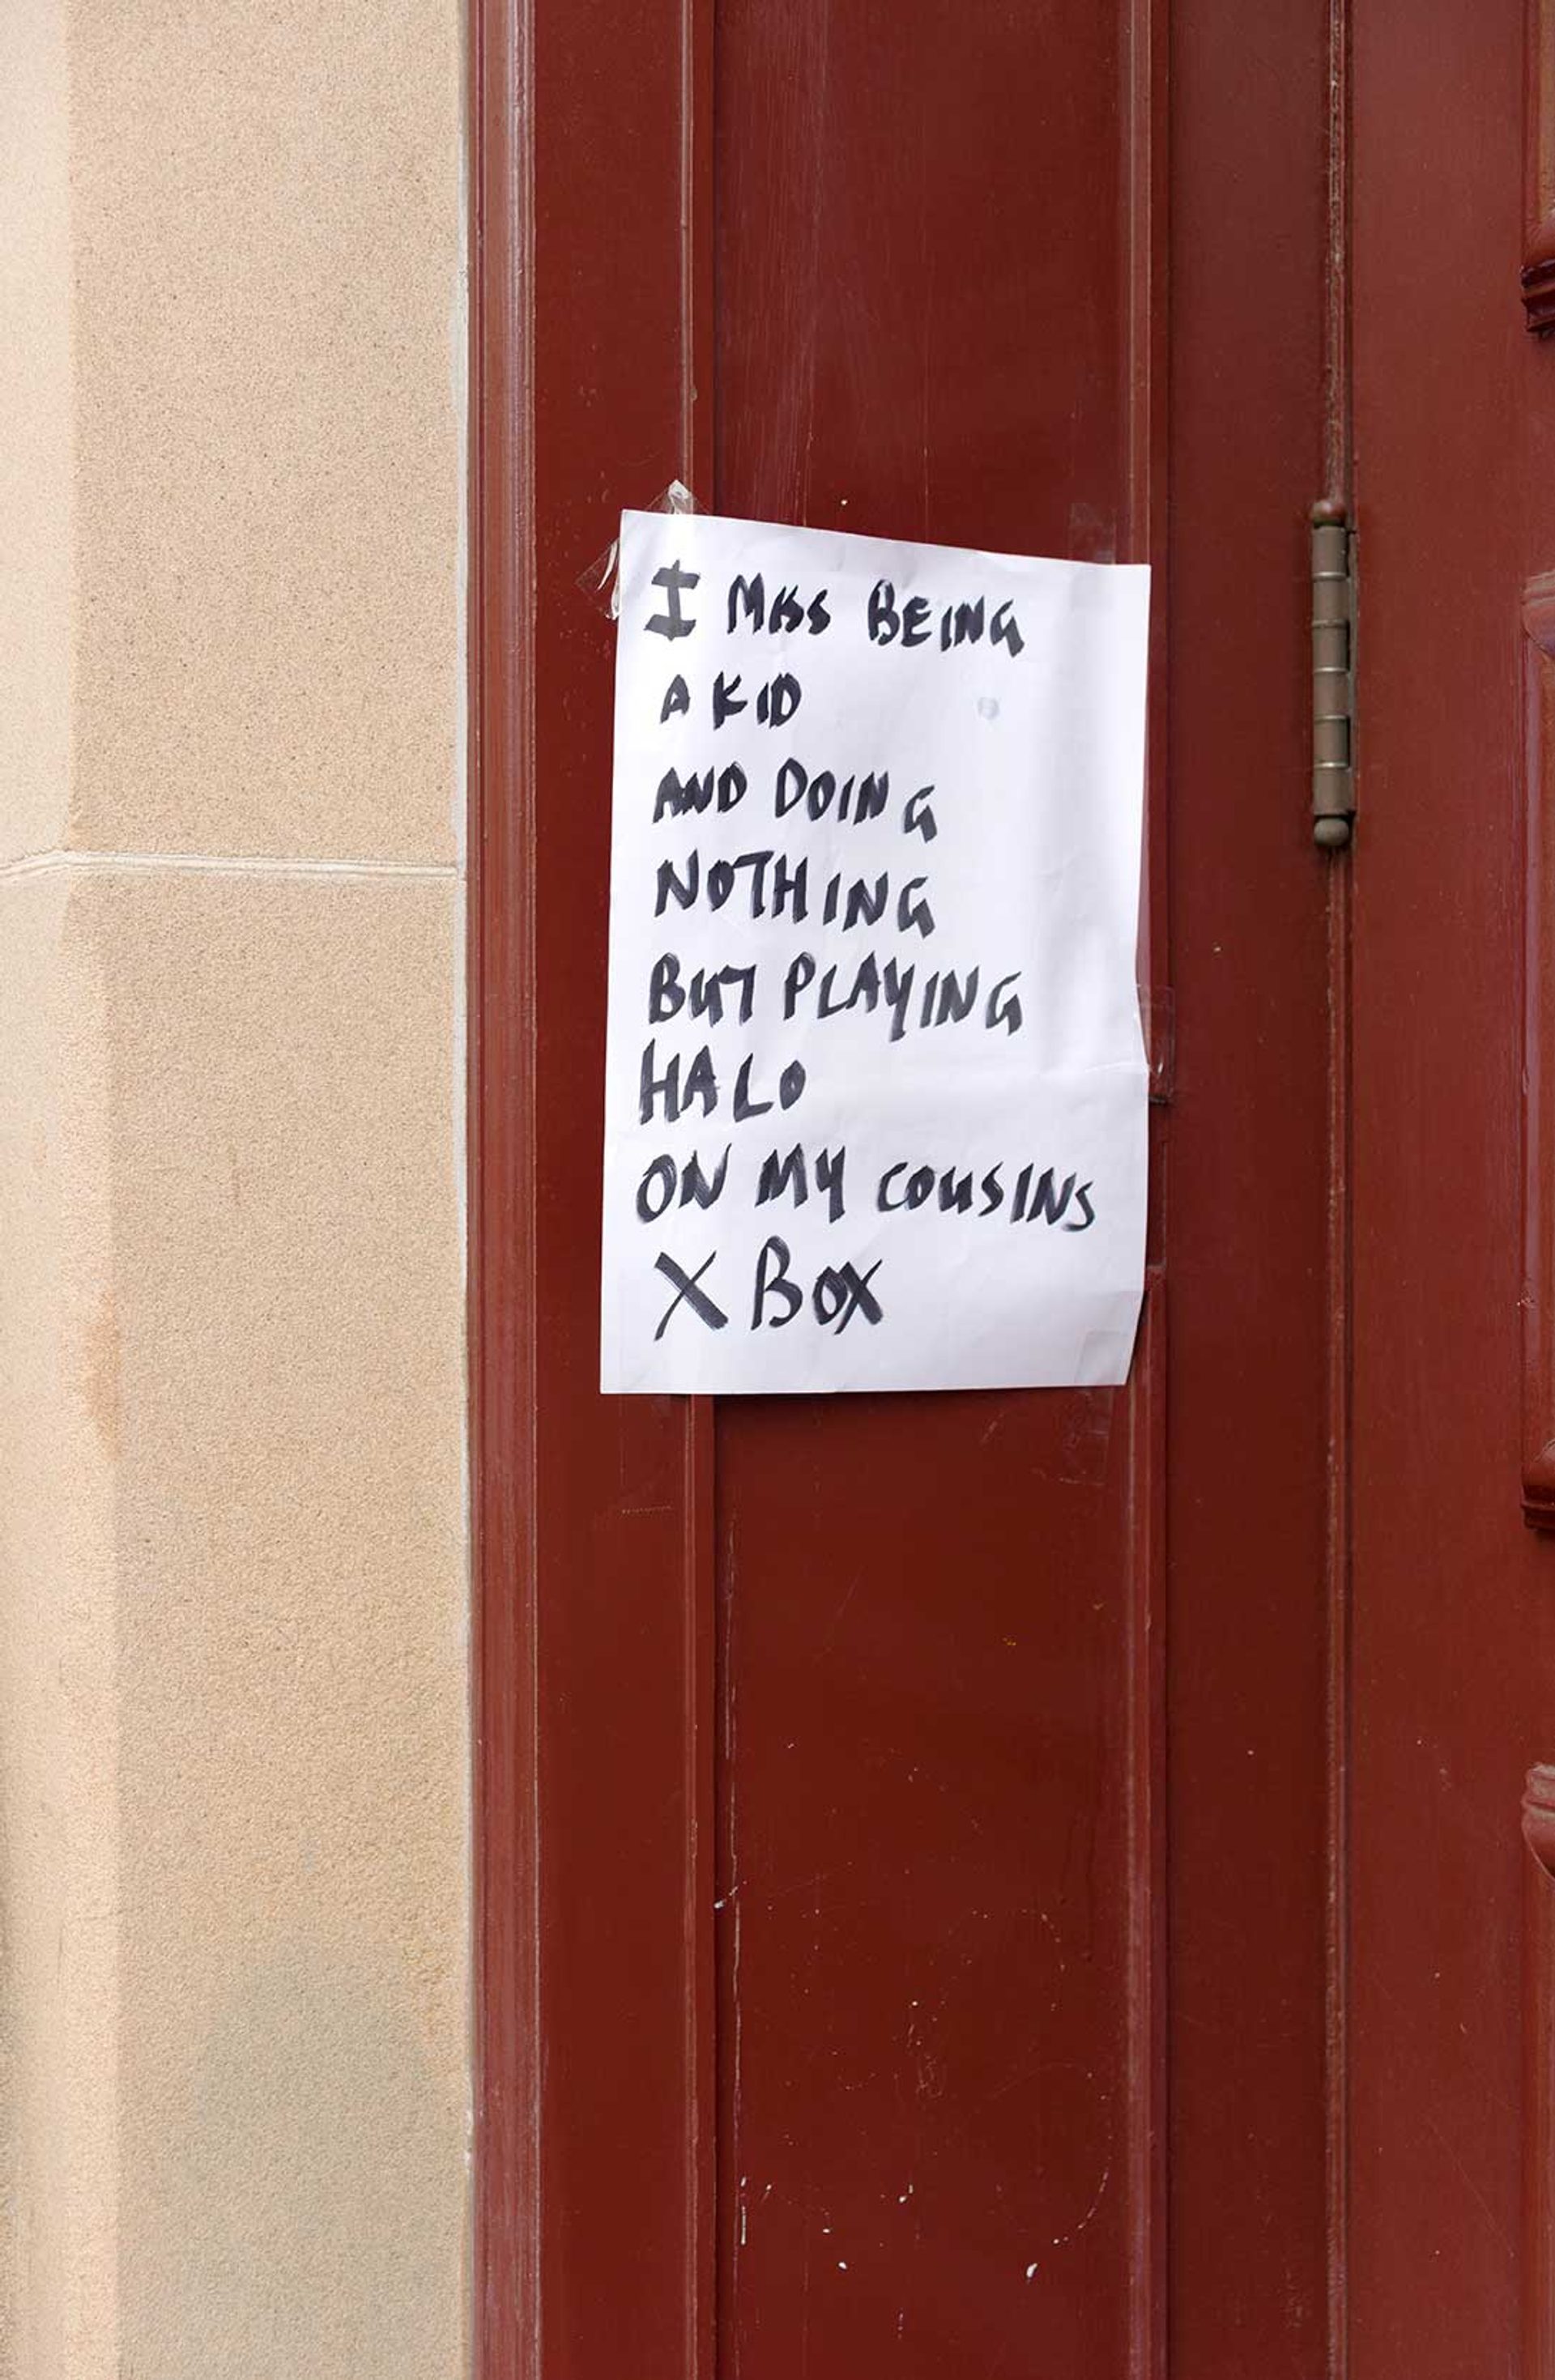 I MISS BEING
A KID
AND DOING
NOTHING
BUT PLAYING
HALO
ON MY COUSINS
X BOX